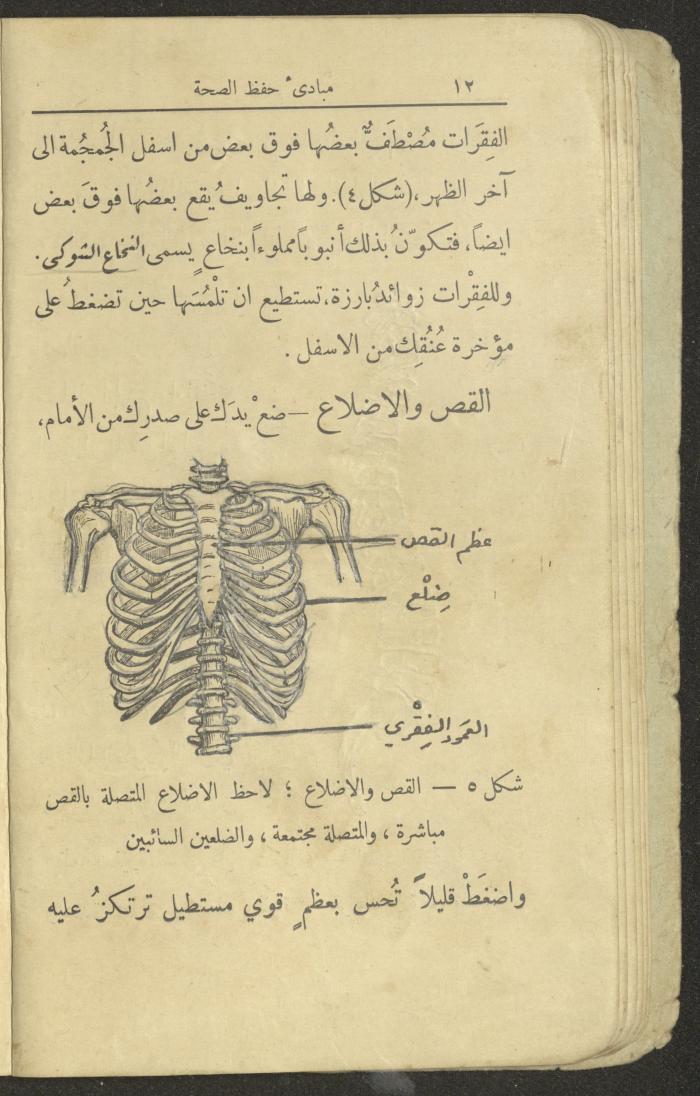 ١٢ مبادئ حفظ الصحة
الفِقَرَات مُصْطَفٌّ بعضُها فوق بعض من اسفل الجُمجُمة الى
آخر الظهر، (شكل ٤). ولها تجاويفُ يقع بعضُها فوقَ بعض
ايضاً، فتكوّنُ بذلك أنبوباً مملوءاً بنخاعٍ يسمى النخاع الشوكي.
وللفِقْرات زوائدُ بارزة، تستطيع ان تلْمُسَها حين تضغطُ على
مؤخرة عُنُقِك من الاسفل.
القص والاضلاع – ضعْ يدَك على صدرِك من الأمام،
عظم القص
ضِلْع
العَمود الفِقْري
شكل ٥ — القص والاضلاع ؛ لاحظ الاضلاع المتصلة بالقص
مباشرة ، والمتصلة مجتمعة ، والضلعين السائبين
واضغَطْ قليلاً تُحس بعظمٍ قوي مستطيل ترتكزُ عليه